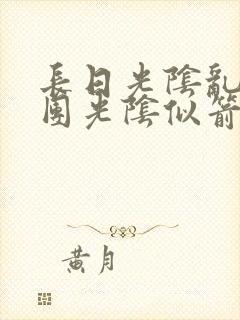 長日光陰亂
團光陰似箭
黃月